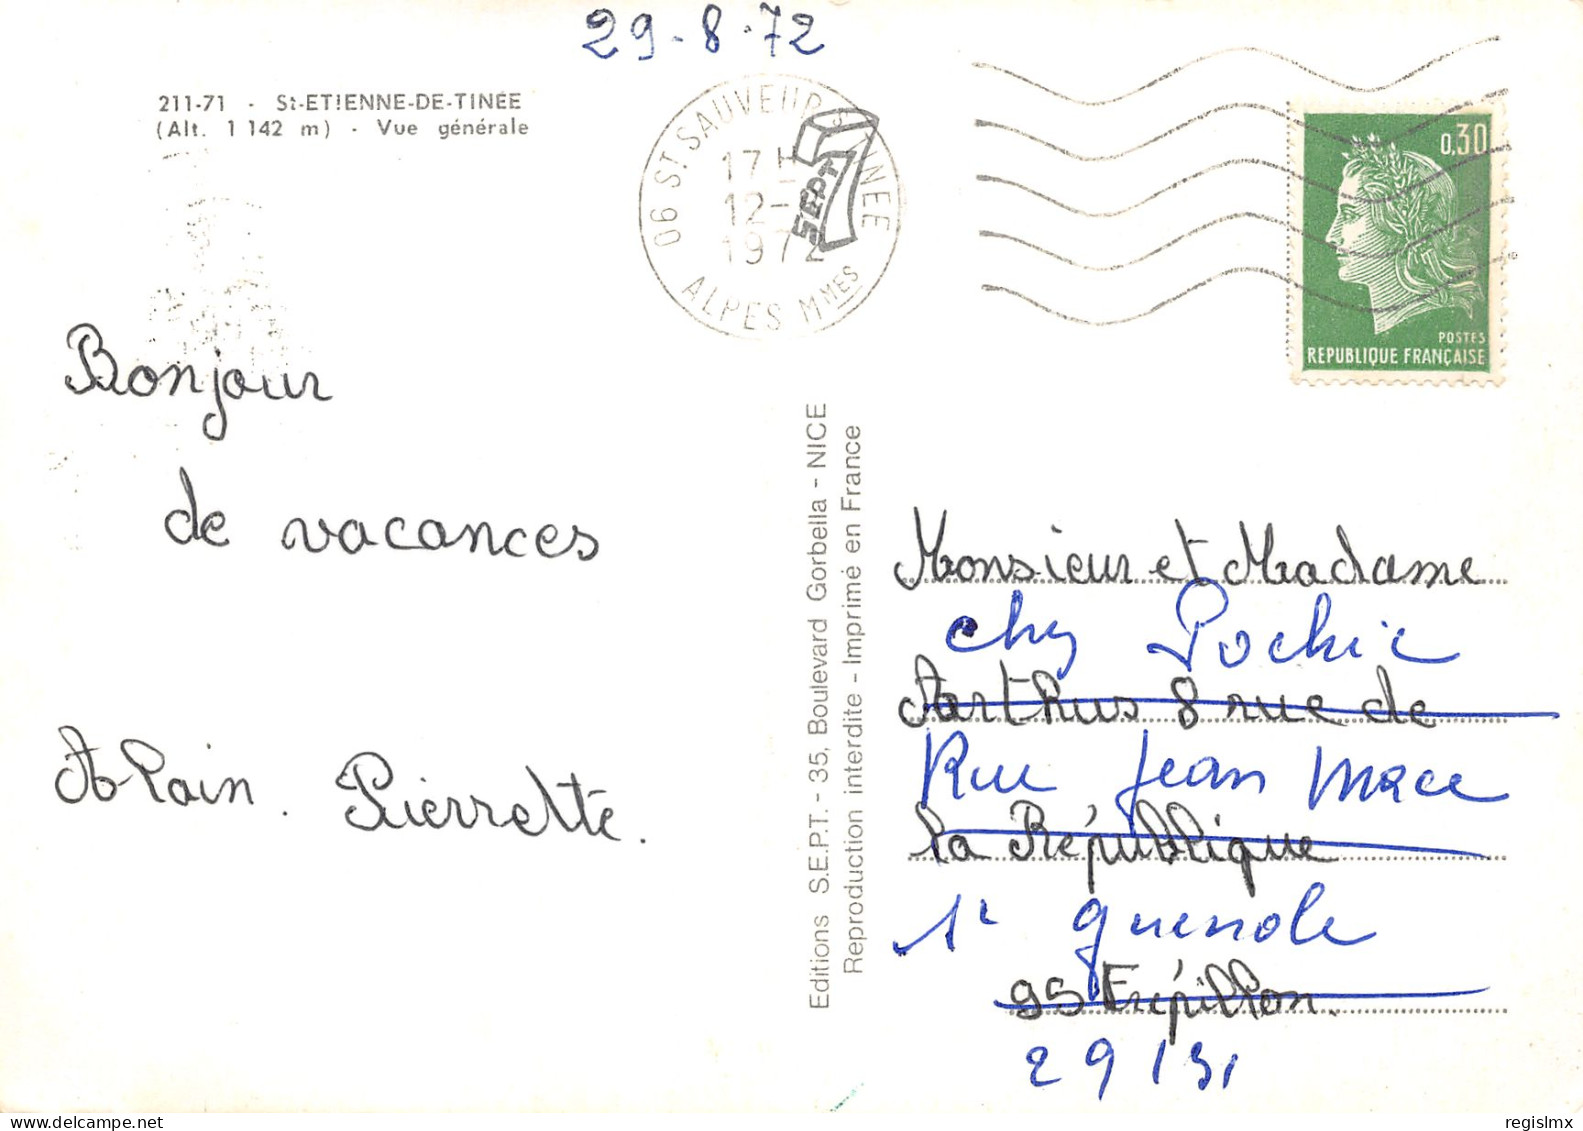 29-8-72
211-71 - St-ETIENNE-DE-TINÉE
(Alt. 1 142 m) - Vue générale
06 ST SAUVEUR S TINEE
17H
12-
1972
ALPES MMES
SEPT
0,30
POSTES
REPUBLIQUE FRANÇAISE
Bonjour
de vacances
Alain. Pierrette.
Editions S.E.P.T. - 35, Boulevard Gorbella - NICE
Reproduction interdite - Imprimé en France
Monsieur et Madame
chez Pochic
Arthus 8 rue de
Rue Jean Mace
la République
St Guenole
95 Frépillon.
29131
www.delcampe.net
regislmx